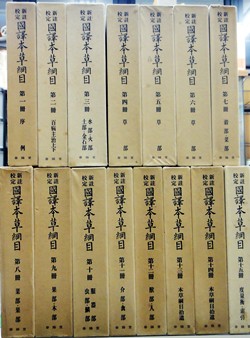 新註校定 國譯本草綱目 第一冊 序例
新註校定 國譯本草綱目 第二冊 百病主治上
新註校定 國譯本草綱目 第三冊 水部火部 土部金石部
新註校定 國譯本草綱目 第四冊 草部
新註校定 國譯本草綱目 第五冊 草部
新註校定 國譯本草綱目 第六冊 草部
新註校定 國譯本草綱目 第七冊 穀部菜部
新註校定 國譯本草綱目 第八冊 菜部果部
新註校定 國譯本草綱目 第九冊 果部木部
新註校定 國譯本草綱目 第十冊 服器部 虫部鱗部
新註校定 國譯本草綱目 第十一冊 介部禽部
新註校定 國譯本草綱目 第十二冊 獸部人部
新註校定 國譯本草綱目 第十三冊 本草綱目拾遺
新註校定 國譯本草綱目 第十四冊 本草綱目拾遺
新註校定 國譯本草綱目 第十
索引